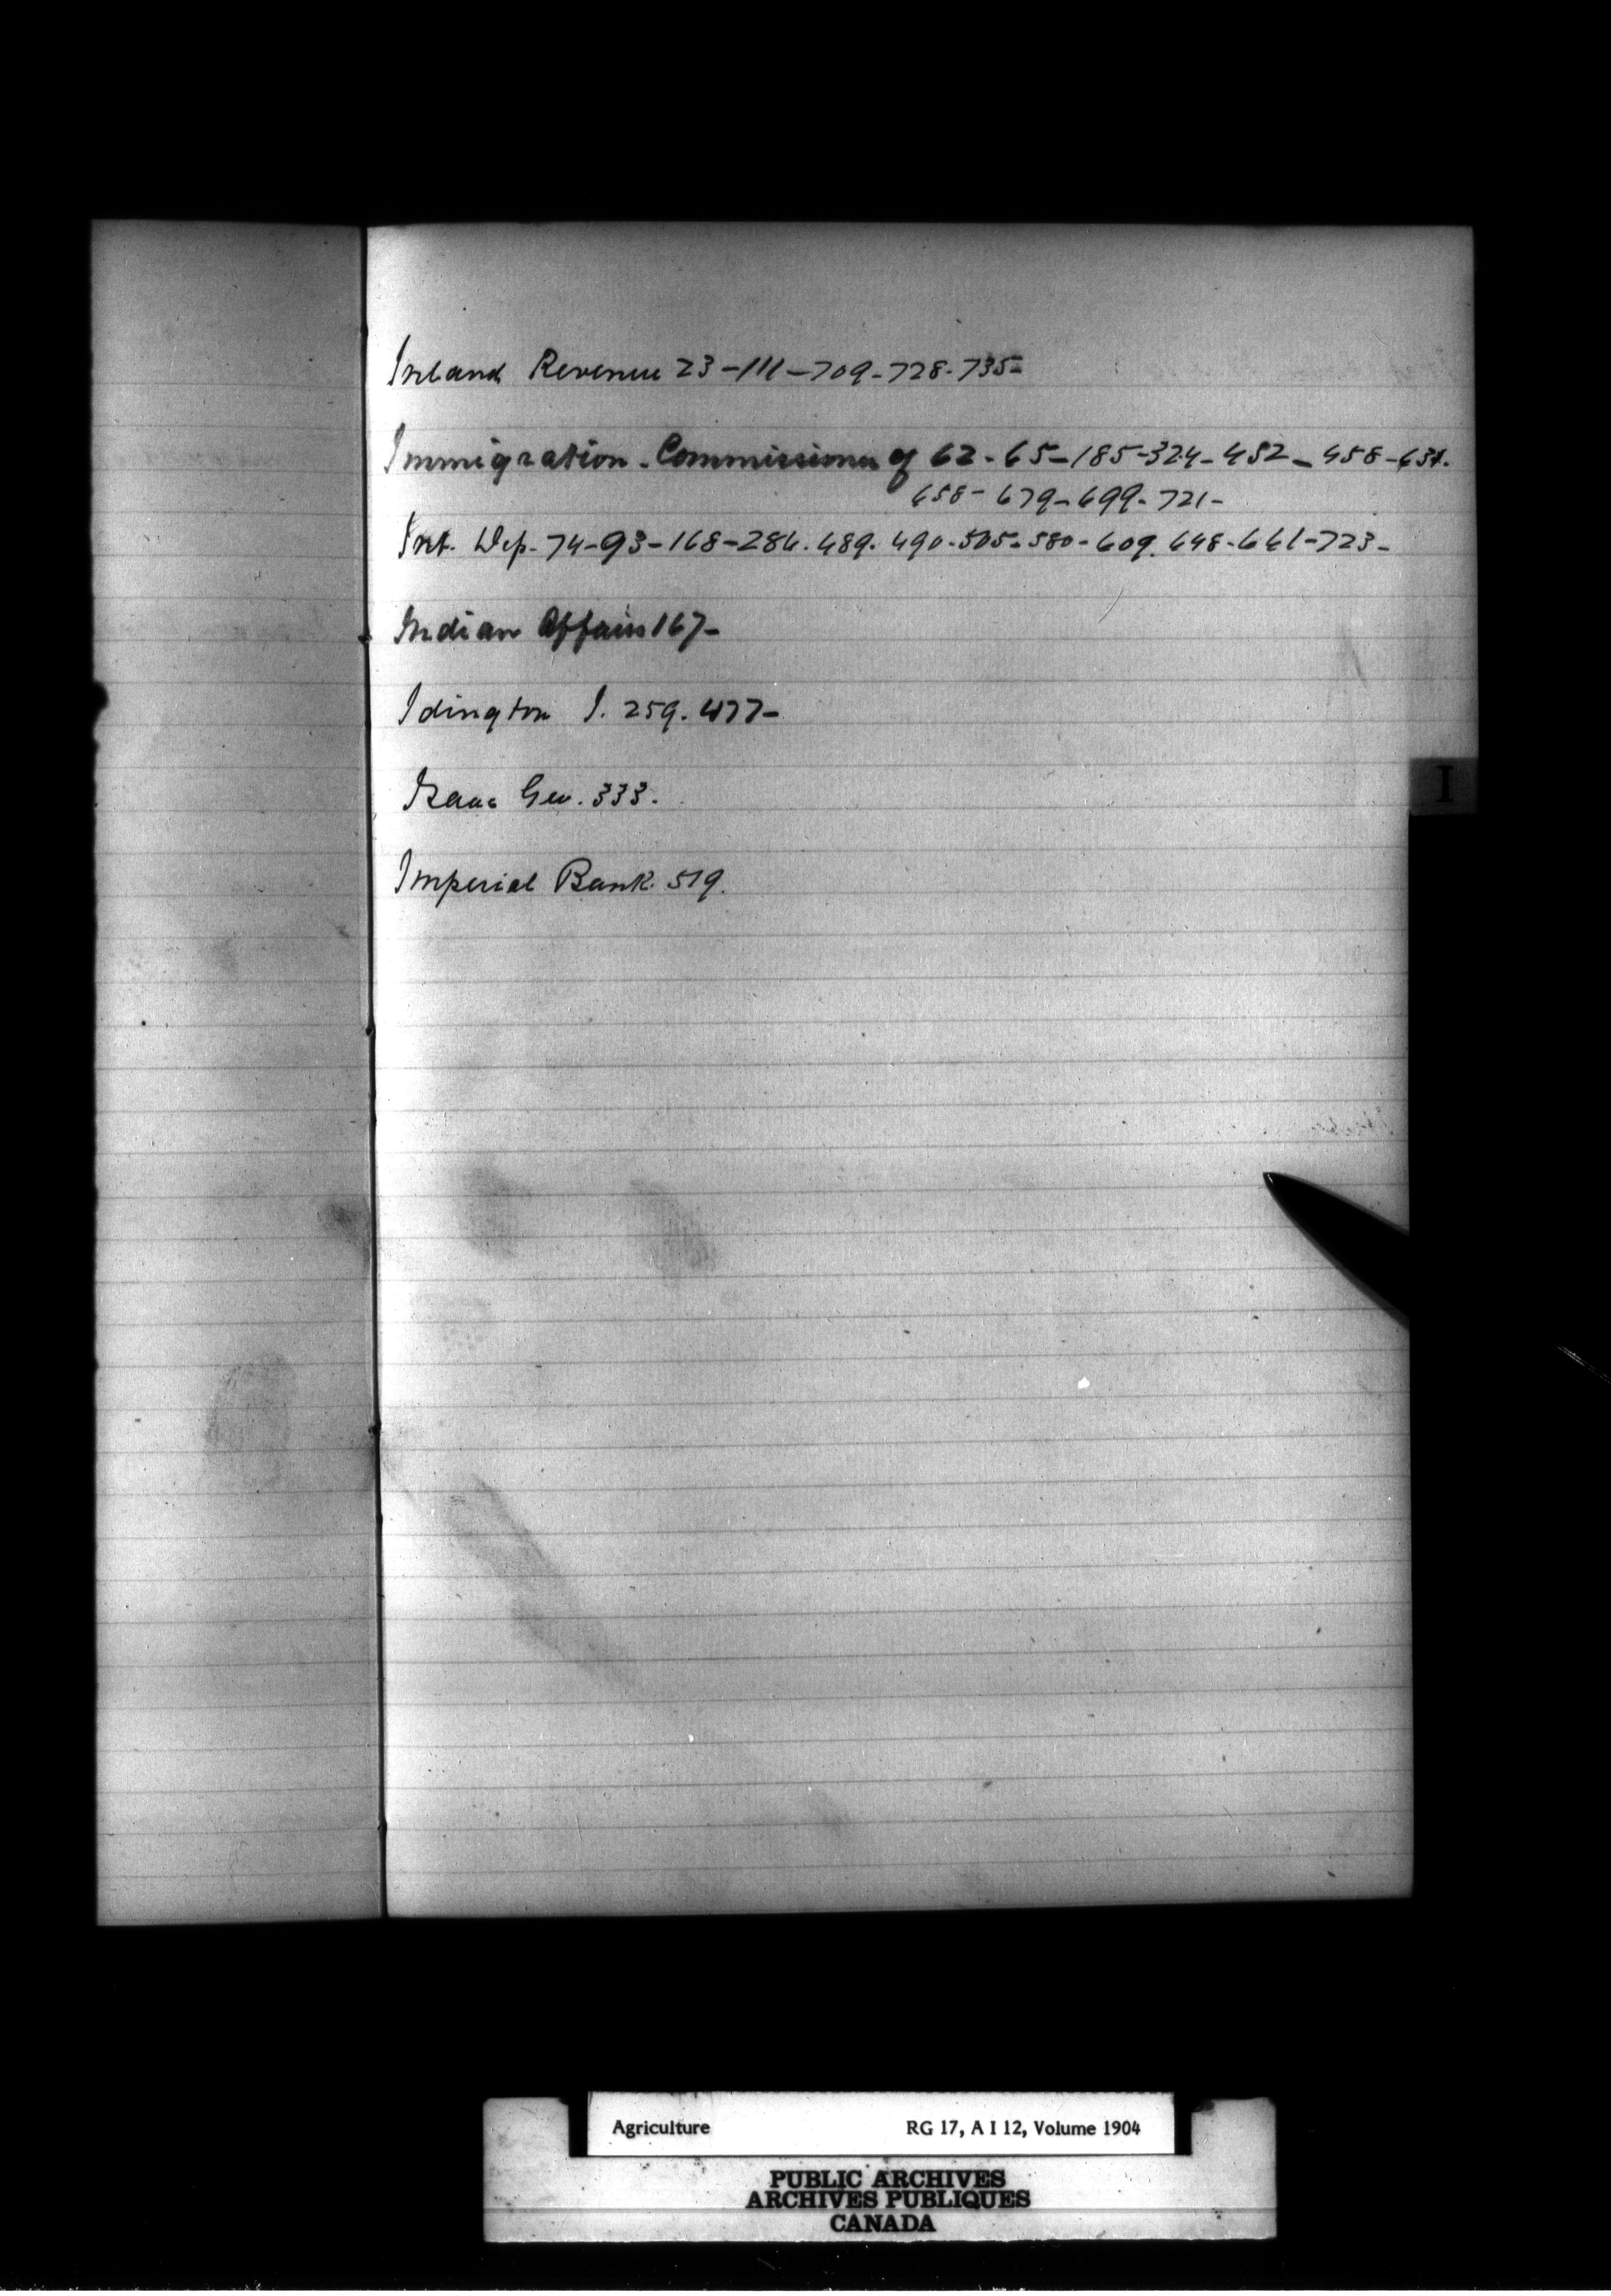 Inland Revenue 23-111-709-728-735-
Immigration - Commissioner of 62-65-185-324-452-458-631.
658-679-699-721-
Int. Dep. 74-93-168-286.489.490-505-580-609.648-661-723-
Indian Affairs 167-
Idington I. 259. 477-
I
Isaac Geo. 333.
Imperial Bank. 519.
Agriculture RG 17, A I 12, Volume 1904
PUBLIC ARCHIVES
ARCHIVES PUBLIQUES
CANADA